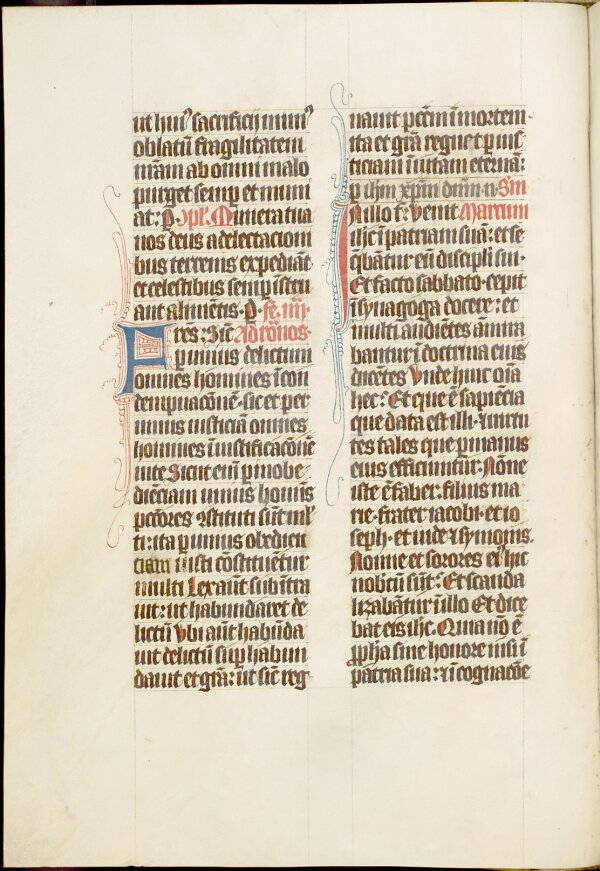 ut huiꝰ sacrificij munꝰ
oblatū fragilitatem
nrām ab omni malo
purget semp et muni
at: P. Cpl. Munera tua
nos deus a delectacioni
bus terrenis expediāt
et celestibus semp istru
ant alimētis. P. fe. iiij.
Fres: Sic̄ Ad ro͞nos.
p unius delictum
omnes homines ī con
dempnacōnē. sic et per
unius iusticiā omnes
homines ī iustificacōnē
uite. Sicut enī p inobe
diēciam unius hominis
pc̄cōres ꝯstituti sūt ml̓
ti: ita p unius obedien
ciam iusti cōstituētur
multi Lex aūt subītra
uit: ut habundaret de
lictū Ubi aūt habūda
uit delictū supͥ habun
dauit et grā: ut sic̄ reg
nauit pcc̄m ī mortem
ita et grā regnet p ius
ticiam ī uitam eternā:
p ihm xp̄m dn̄m n. Sm
In illo t̄: Venit Marcum
ihc̄ ī patriam suā: et se
q̄bātur eū discipli sui.
Et facto sabbato. cepit
ī synagoga docere: et
multi audiētes āmira
bantur ī doctrina eius
dicētes Unde huic oīa
hec: Et que ē sapiēcia
que data est illi. uirtu
tes tales que p manus
eius efficiuntur: Nōne
iste ē faber. filius ma
rie. frater iacobi. et io
seph. et iude ⁊ symonis.
Nonne et sorores eiꝰ hic
nobcū sūt: Et scanda
lizabātur ī illo Et dice
bat eis ihc̄. Quia nō ē
pp̄ha sine honore nisi ī
patria sua: ⁊ ī cognacōe